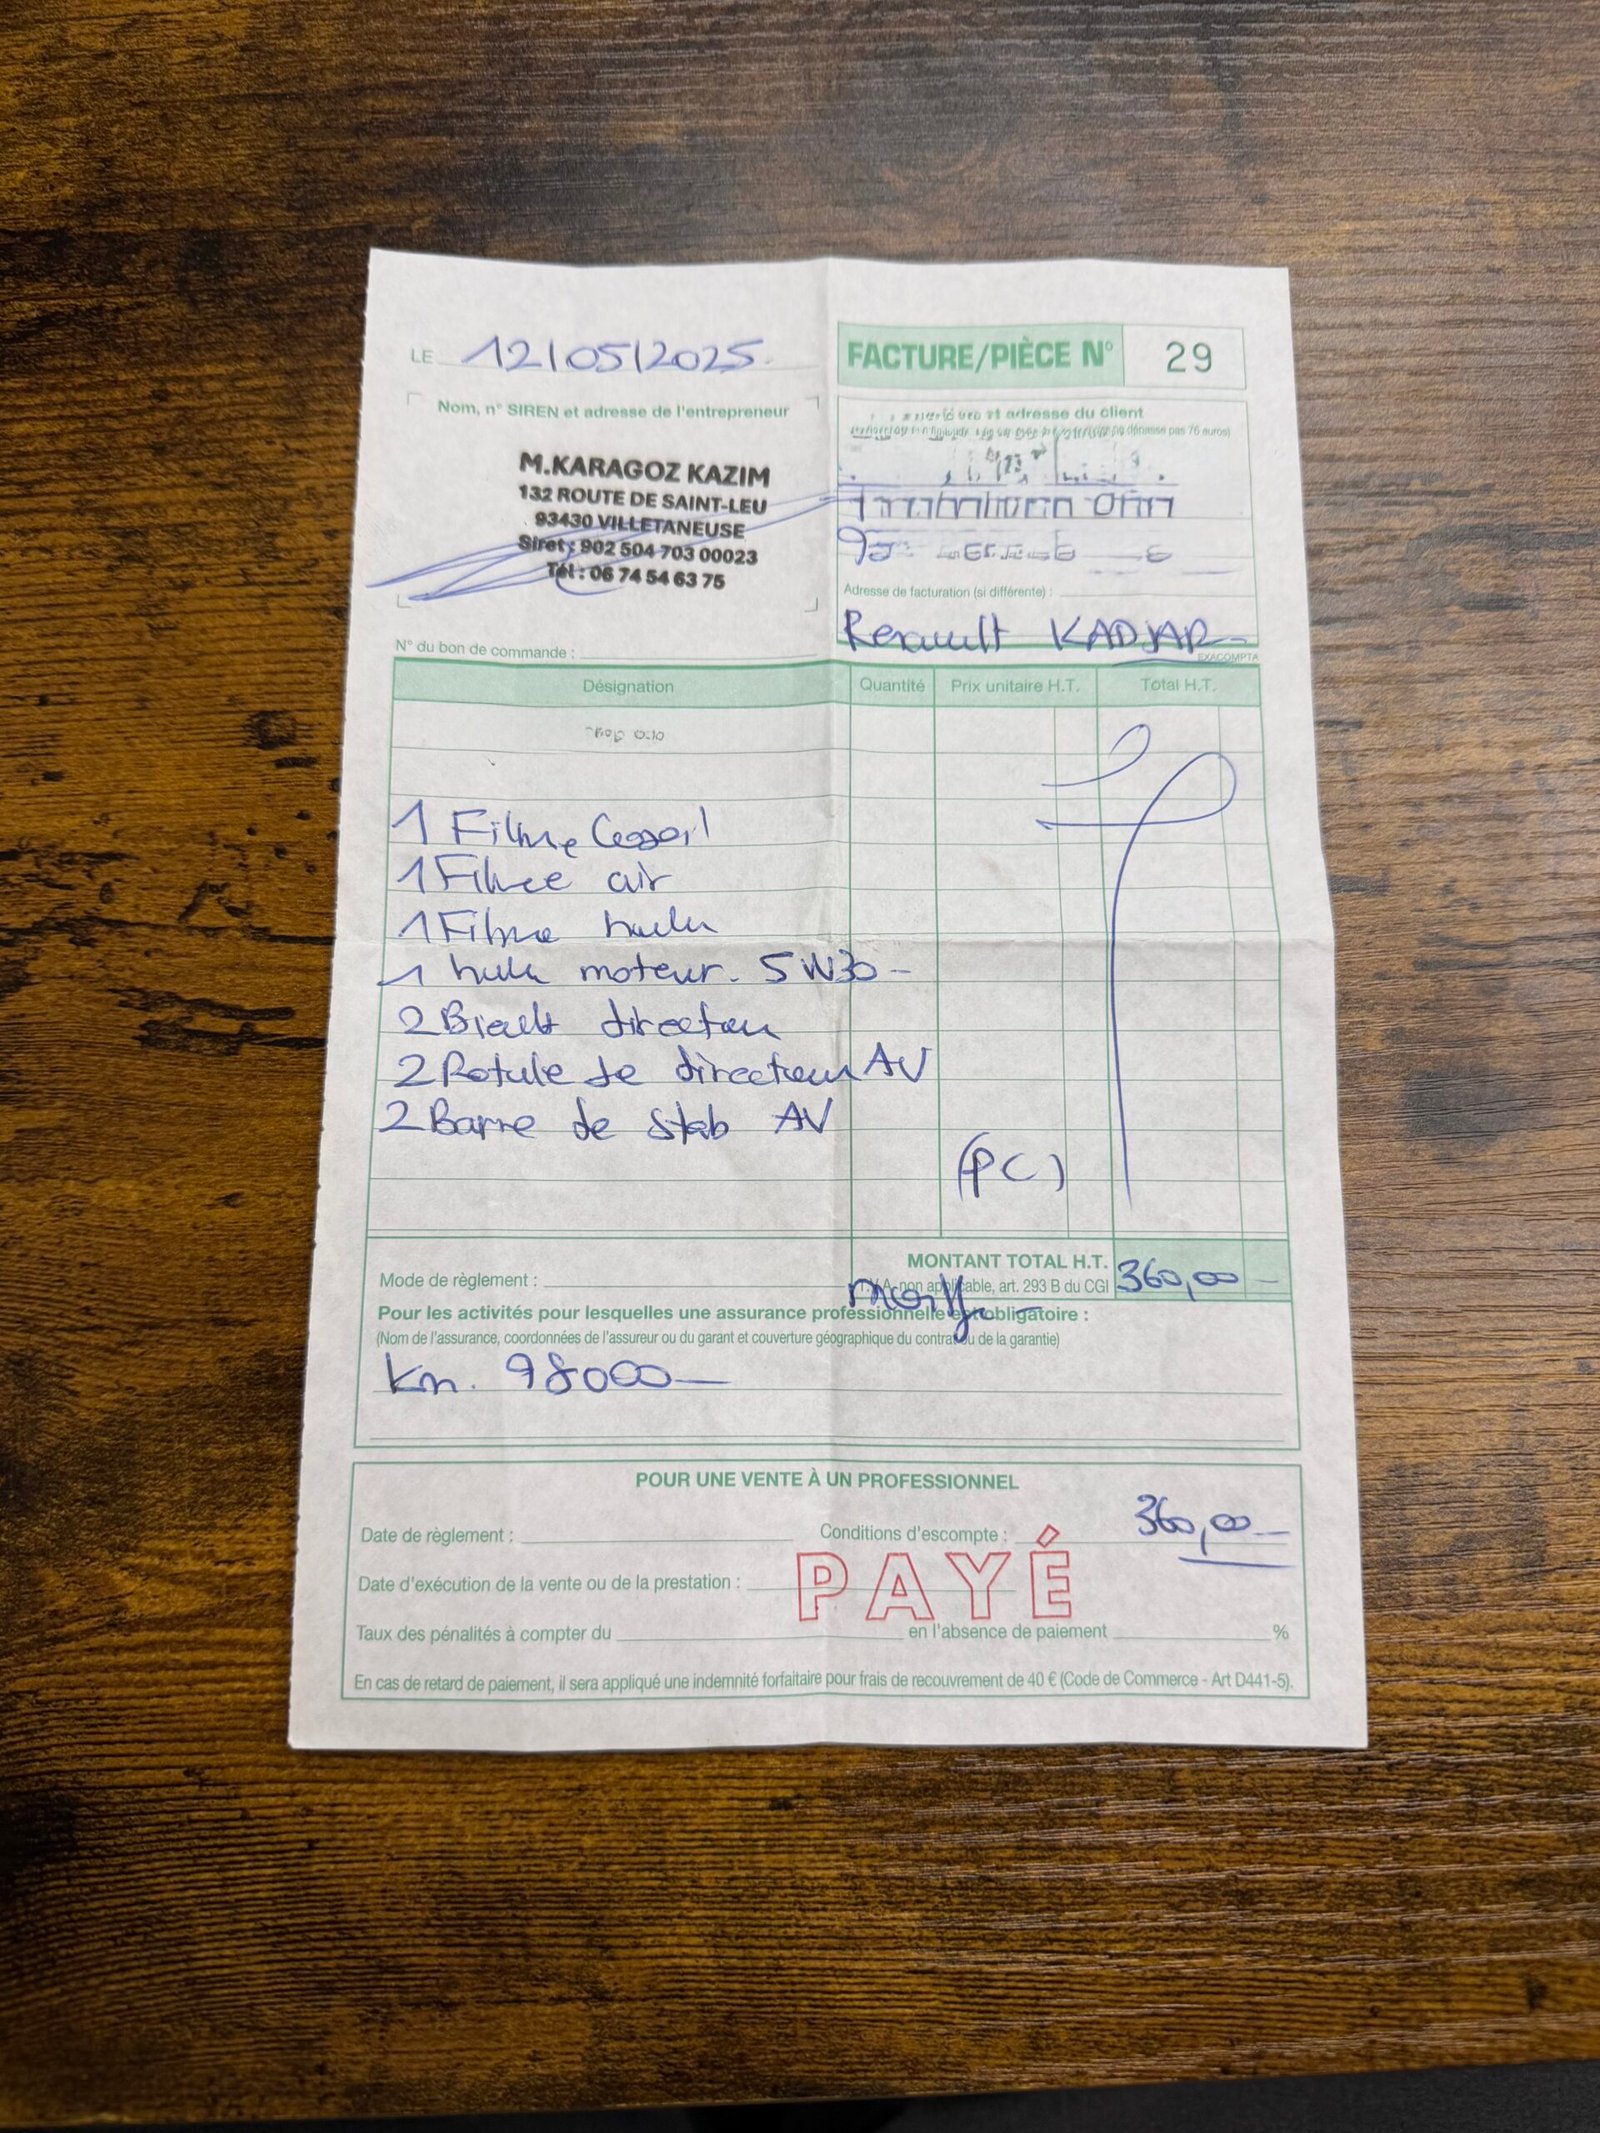 LE 12/05/2025
FACTURE/PIÈCE N° 29
Nom, n° SIREN et adresse de l'entrepreneur
M.KARAGOZ KAZIM
132 ROUTE DE SAINT-LEU
93430 VILLETANEUSE
Siret : 902 504 703 00023
Tél : 06 74 54 63 75
et adresse du client
dépasse pas 76 euros)
Adresse de facturation (si différente) :
Renault KADJAR
N° du bon de commande :
EXACOMPTA
Désignation Quantité Prix unitaire H.T. Total H.T.
1 Filtre
1 Filtre air
1 Filtre huile
1 huile moteur. 5W30 -
2 direction
2 Rotule de direction AV
2 Barre de stab AV
(PC)
MONTANT TOTAL H.T. 360,00 -
Mode de règlement : T.V.A. non applicable, art. 293 B du CGI
Pour les activités pour lesquelles une assurance professionnelle est obligatoire :
(Nom de l'assurance, coordonnées de l'assureur ou du garant et couverture géographique du contrat ou de la garantie)
km. 98000 -
POUR UNE VENTE À UN PROFESSIONNEL
360,00 -
Date de règlement : Conditions d'escompte :
Date d'exécution de la vente ou de la prestation :
PAYÉ
Taux des pénalités à compter du en l'absence de paiement %
En cas de retard de paiement, il sera appliqué une indemnité forfaitaire pour frais de recouvrement de 40 € (Code de Commerce - Art D441-5).